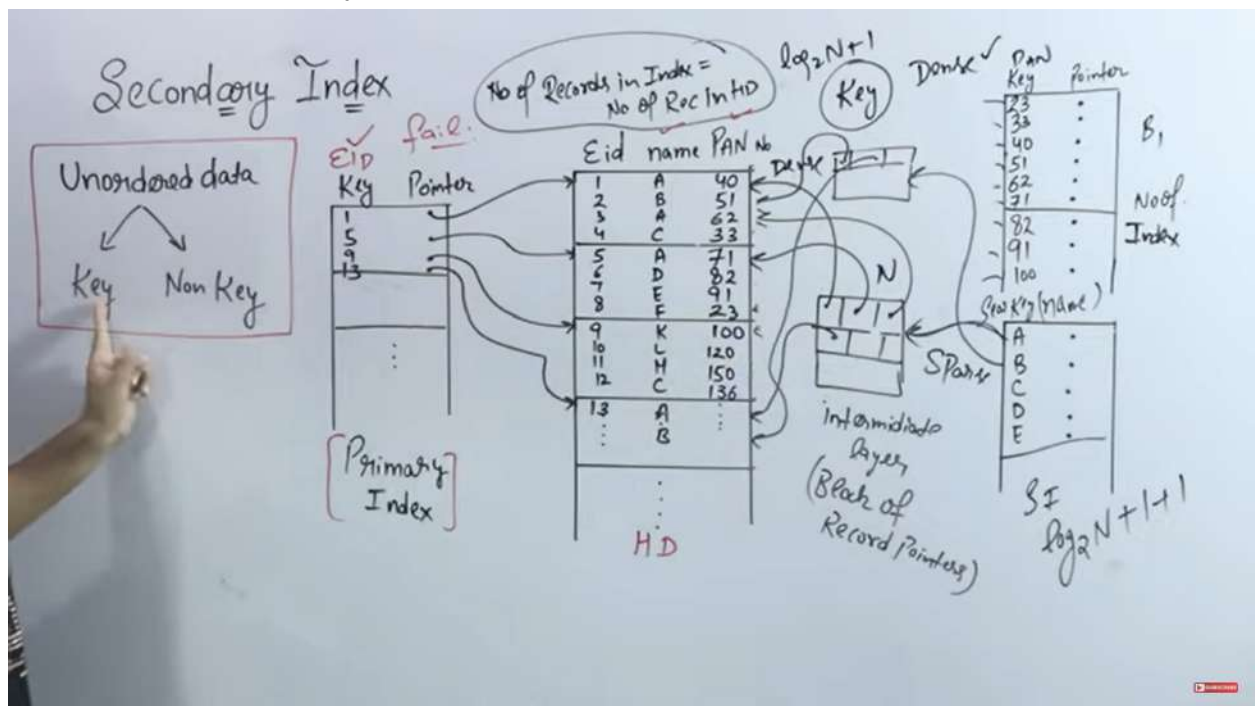 Secondary Index
Unordered data
Key Non Key
EID fail.
Key Pointer
1
5
9
13
[Primary
Index]
No of Records in Index =
No of Rec In HD
Eid name PAN No
1 A 40
2 B 51
3 A 62
4 C 33
5 A 71
6 D 82
7 E 91
8 F 23
9 K 100
10 L 120
11 M 150
12 C 136
13 A
B
HD
log₂N+1
Key
Dense
N
intermidiate
layer
(Block of
Record Pointers)
Dense ✓
PAN
Key Pointer
23
33
40
51
62
71
82
91
100
B₁
No of
Index
Key (name)
A
B
C
D
E
Sparse
SI
log₂N+1+1
SUBSCRIBE